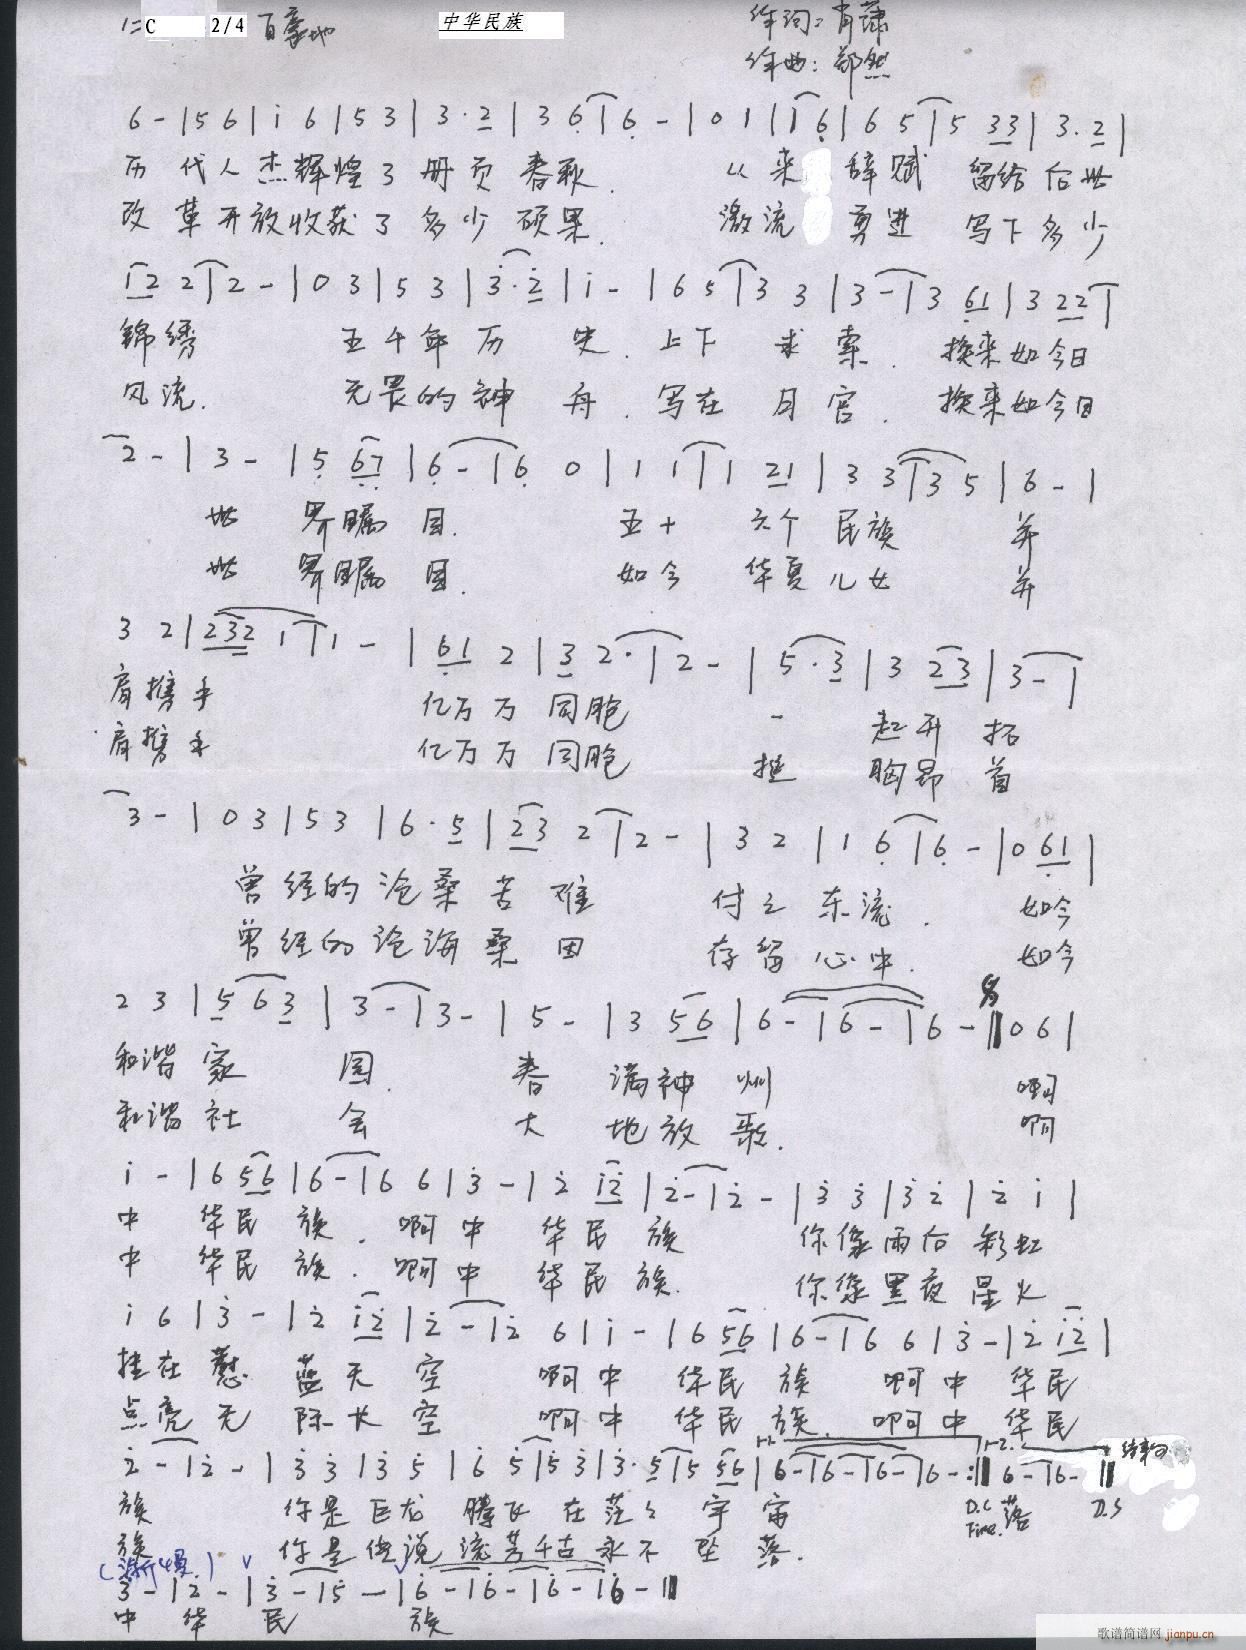 1=C 2/4 自豪地 中华民族 作词：肖萧
作曲：郑然
6 - | 5 6 | i 6 | 5 3 | 3 · 2 | 3 6 | 6 - | 0 1 | 1 6 | 6 5 | 5 3 3 | 3 . 2 |
历代人杰辉煌了册页春秋. 从来 辞赋 留给后世
改革开放收获了多少硕果. 激流 勇进 写下多少
1 2 2 | 2 - | 0 3 | 5 3 | 3 · 2 | i - | 6 5 | 3 3 | 3 - | 3 6 1 | 3 2 2 |
锦绣 五千年历史. 上下求索. 换来如今日
风流. 无畏的神舟. 写在月宫. 换来如今日
2 - | 3 - | 5 6 7 | 6 - | 6 0 | 1 1 | 1 2 1 | 3 3 | 3 5 | 6 - |
世界瞩目. 五十六个民族 并
世界瞩目. 如今华夏儿女 并
3 2 | 2 3 2 1 | 1 - | 6 1 2 | 3 2 · | 2 - | 5 · 3 | 3 2 3 | 3 - |
肩携手 亿万万同胞 一起开拓
肩携手 亿万万同胞 挺胸昂首
3 - | 0 3 | 5 3 | 6 · 5 | 2 3 2 | 2 - | 3 2 | 1 6 | 6 - | 0 6 1 |
曾经的沧桑苦难 付之东流. 如今
曾经的沧海桑田 存留心中. 如今
2 3 | 5 6 3 | 3 - | 3 - | 5 - | 3 5 6 | 6 - | 6 - | 6 - || 0 6 |
和谐家园. 春满神州 啊
和谐社会 大地放歌. 啊
i - | 6 5 6 | 6 - | 6 6 | 3 - | 2 i 2 | 2 - | 2 - | 3 3 | 3 2 | 2 i |
中华民族. 啊中华民族 你像雨后彩虹
中华民族. 啊中华民族. 你像黑夜星火
i 6 | 3 - | 2 i 2 | 2 - | 2 6 | i - | 6 5 6 | 6 - | 6 6 | 3 - | 2 i 2 |
挂在 蓝天空 啊中华民族 啊中华民
点亮无际长空 啊中华民族. 啊中华民
2 - | 2 - | 3 3 | 3 5 | 6 5 | 5 3 | 3 · 5 | 5 5 6 | 6 - | 6 - | 6 - | 6 - :|| 6 - | 6 - || 结束句
族 你是巨龙腾飞在茫々宇宙 D.C 落 D.S
族 你是传说流芳千古永不坠落. Fine.
(渐慢)
3 - | 2 - | 3 - | 5 - | 6 - | 6 - | 6 - | 6 - ||
中华民族
歌谱简谱网 jianpu.cn